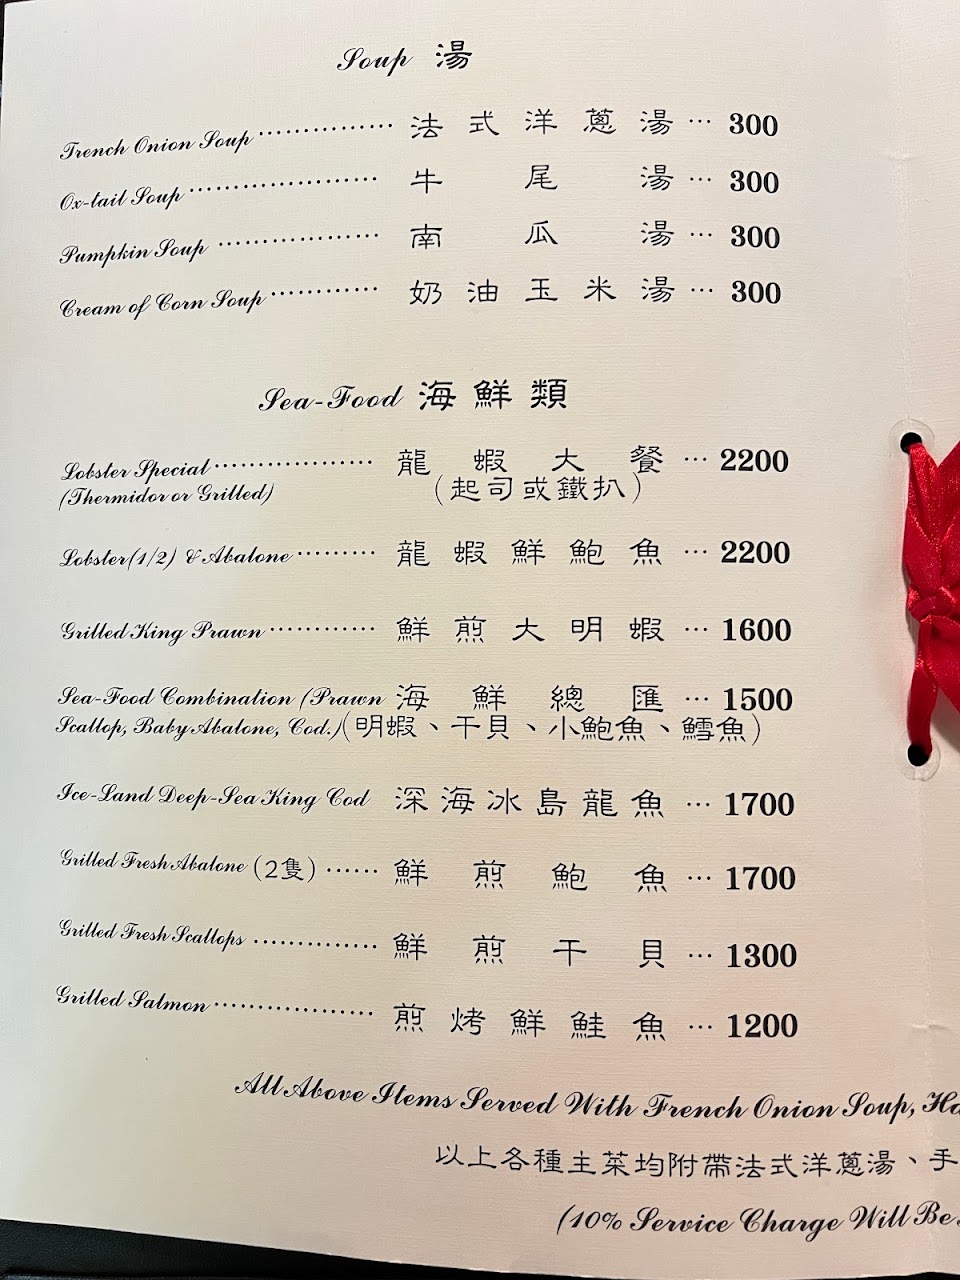 Soup 湯
French Onion Soup ··············· 法式洋蔥湯 ··· 300
Ox-tail Soup ····················· 牛尾湯 ··· 300
Pumpkin Soup ·················· 南瓜湯 ··· 300
Cream of Corn Soup ············ 奶油玉米湯 ··· 300
Sea-Food 海鮮類
Lobster Special ·················· 龍蝦大餐 ··· 2200
(Thermidor or Grilled) (起司或鐵扒)
Lobster(1/2) & Abalone ········· 龍蝦鮮鮑魚 ··· 2200
Grilled King Prawn ············ 鮮煎大明蝦 ··· 1600
Sea-Food Combination (Prawn 海鮮總匯 ··· 1500
Scallop, Baby Abalone, Cod.) (明蝦、干貝、小鮑魚、鱈魚)
Ice-Land Deep-Sea King Cod 深海冰島龍魚 ··· 1700
Grilled Fresh Abalone (2隻) ······ 鮮煎鮑魚 ··· 1700
Grilled Fresh Scallops ·············· 鮮煎干貝 ··· 1300
Grilled Salmon ·················· 煎烤鮮鮭魚 ··· 1200
All Above Items Served With French Onion Soup, Ha
以上各種主菜均附帶法式洋蔥湯、手
(10% Service Charge Will Be